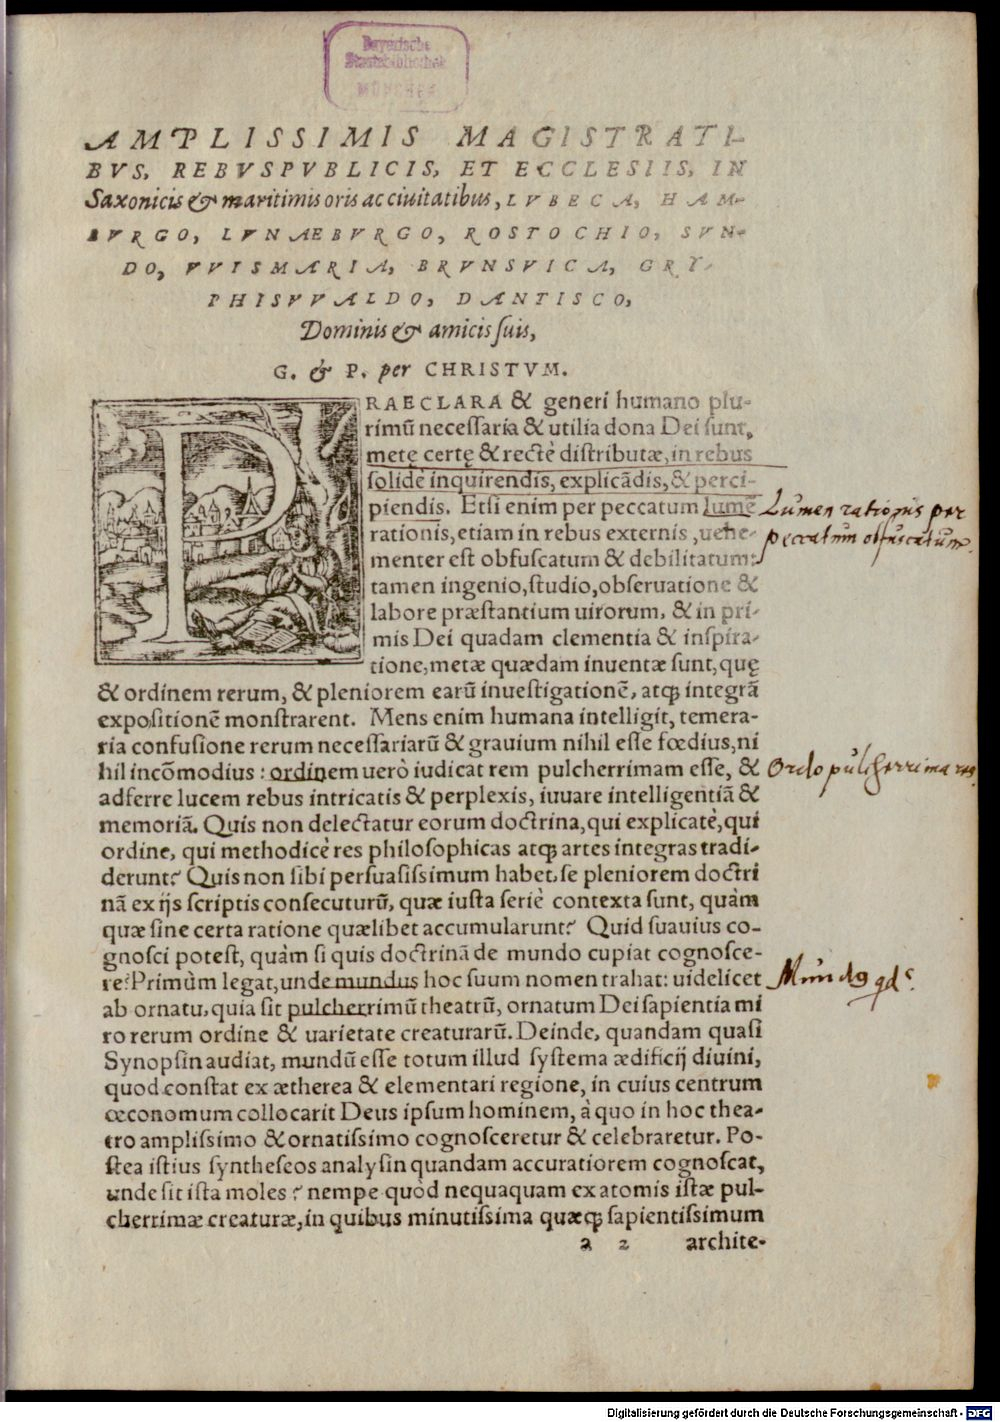 Bayerische
Staatsbibliothek
MÜNCHEN
AMPLISSIMIS MAGISTRATI-
BVS, REBVSPVBLICIS, ET ECCLESIIS, IN
Saxonicis & maritimis oris ac ciuitatibus, LVBECA, HAM-
BVRGO, LVNAEBVRGO, ROSTOCHIO, SVN-
DO, VVISMARIA, BRVNSVICA, GRY-
PHISVVALDO, DANTISCO,
Dominis & amicis suis,
G. & P. per CHRISTVM.
PRAECLARA & generi humano plu-
rimū necessaria & utilia dona Dei sunt,
metę certę & rectè distributæ, in rebus
solidè inquirendis, explicādis, & perci-
piendis. Etsi enim per peccatum lumē
rationis, etiam in rebus externis, uehe-
menter est obfuscatum & debilitatum:
tamen ingenio, studio, obseruatione &
labore præstantium uirorum, & in pri-
mis Dei quadam clementia & inspira-
tione, metæ quædam inuentæ sunt, quę
& ordinem rerum, & pleniorem earū inuestigationē, atq; integrā
expositionē monstrarent. Mens enim humana intelligit, temera-
ria confusione rerum necessariarū & grauium nihil esse fœdius, ni
hil incōmodius: ordinem uerò iudicat rem pulcherrimam esse, &
adferre lucem rebus intricatis & perplexis, iuuare intelligentiā &
memoriā. Quis non delectatur eorum doctrina, qui explicatè, qui
ordine, qui methodicè res philosophicas atq; artes integras tradi-
derunt? Quis non sibi persuasissimum habet, se pleniorem doctri
nā ex ijs scriptis consecuturū, quæ iusta seriè contexta sunt, quàm
quæ sine certa ratione quælibet accumularunt? Quid suauius co-
gnosci potest, quàm si quis doctrinā de mundo cupiat cognosce-
re? Primùm legat, unde mundus hoc suum nomen trahat: uidelicet
ab ornatu, quia sit pulcherrimū theatrū, ornatum Dei sapientia mi
ro rerum ordine & uarietate creaturarū. Deinde, quandam quasi
Synopsin audiat, mundū esse totum illud systema ædificij diuini,
quod constat ex ætherea & elementari regione, in cuius centrum
œconomum collocarit Deus ipsum hominem, à quo in hoc thea-
tro amplissimo & ornatissimo cognosceretur & celebraretur. Po-
stea istius syntheseos analysin quandam accuratiorem cognoscat,
unde sit ista moles? nempe quòd nequaquam ex atomis istæ pul-
cherrimæ creaturæ, in quibus minutissima quæq; sapientissimum
a 2 archite-
Lumen rationis per
peccatum obfuscatum.
Ordo pulcherrima res.
Mundus qd.
Digitalisierung gefördert durch die Deutsche Forschungsgemeinschaft - DFG